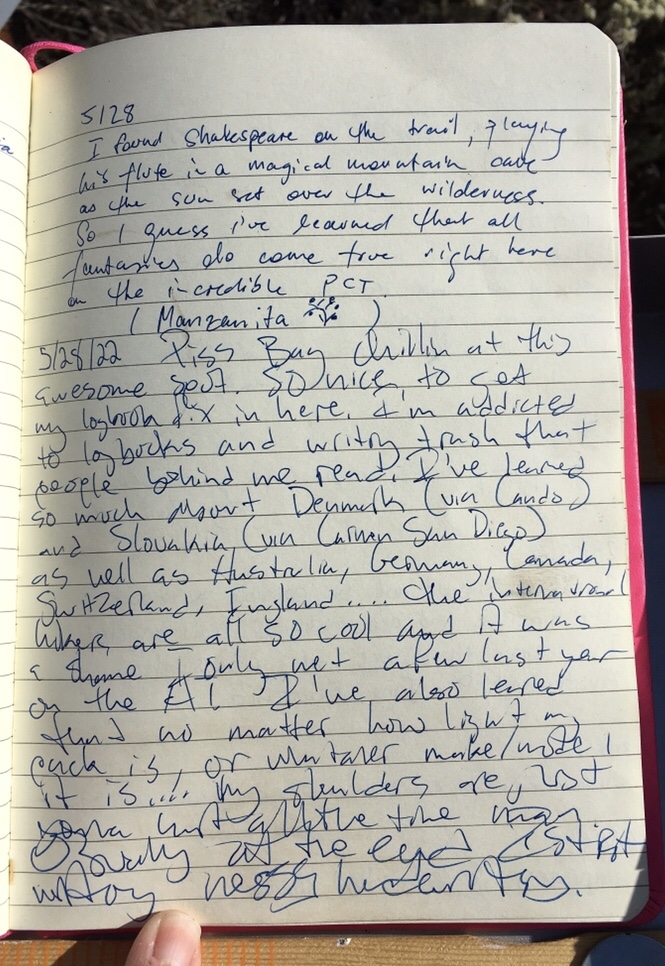 5/28
I found Shakespeare on the trail, playing
his flute in a magical mountain cave
as the sun set over the wilderness.
So I guess i've learned that all
fantasies do come true right here
on the incredible PCT.
(Manzanita )
5/28/22 Piss Bag Chillin at this
awesome spot. SO nice to get
my logbook fix in here. I'm addicted
to logbooks and writing trash that
people behind me read. I've learned
so much about Denmark (via Lando)
and Slovakia (via Carmen San Diego)
as well as Australia, Germany, Canada,
Switzerland, England.... the international
hikers are all so cool and it was
a shame I only met a few last year
on the AT. I've also learned
that no matter how light my
pack is, or whatever make/model
it is..... my shoulders are just
gonna hurt all the time
at the end